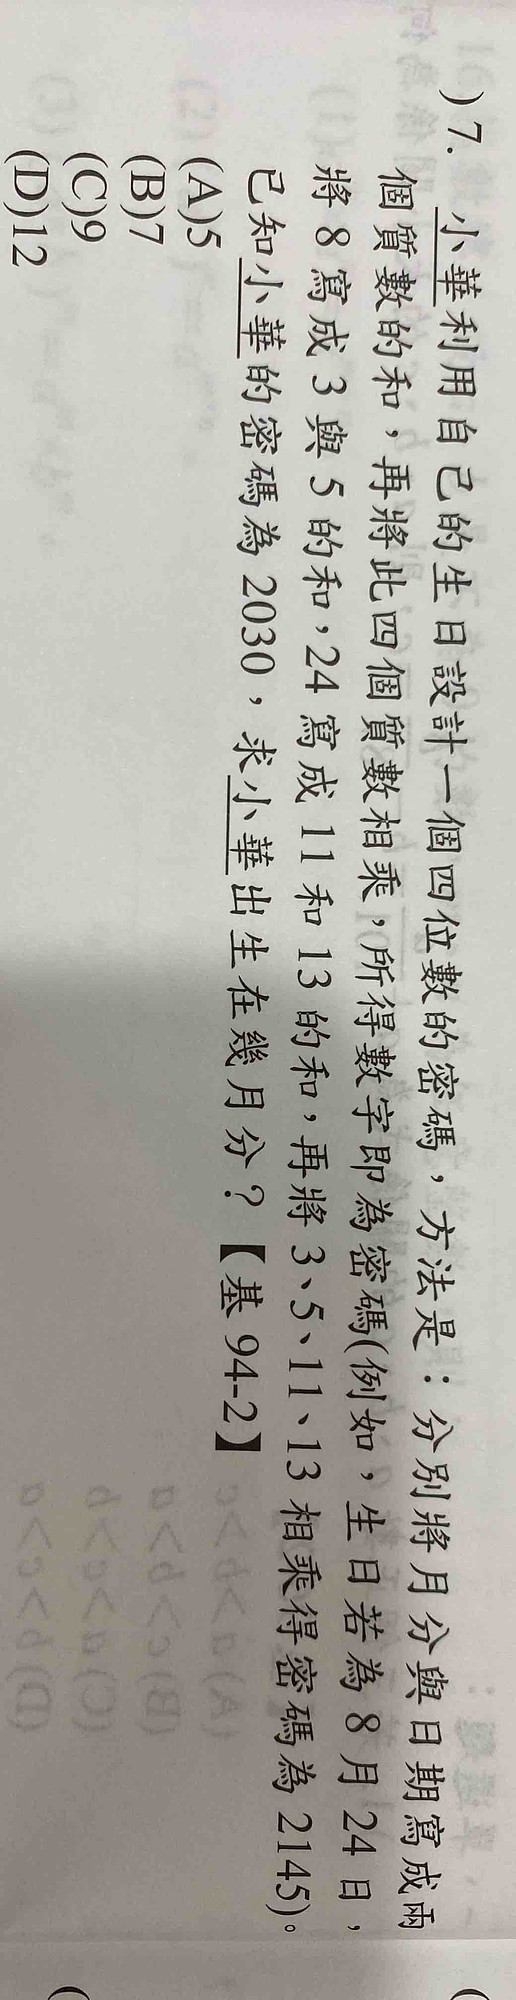 )7. 小華利用自己的生日設計一個四位數的密碼，方法是：分別將月分與日期寫成兩
個質數的和，再將此四個質數相乘，所得數字即為密碼(例如，生日若為8月24日，
將8寫成3與5的和，24寫成11和13的和，再將3、5、11、13相乘得密碼為2145)。
已知小華的密碼為2030，求小華出生在幾月分？【基94-2】
(A)5
(B)7
(C)9
(D)12